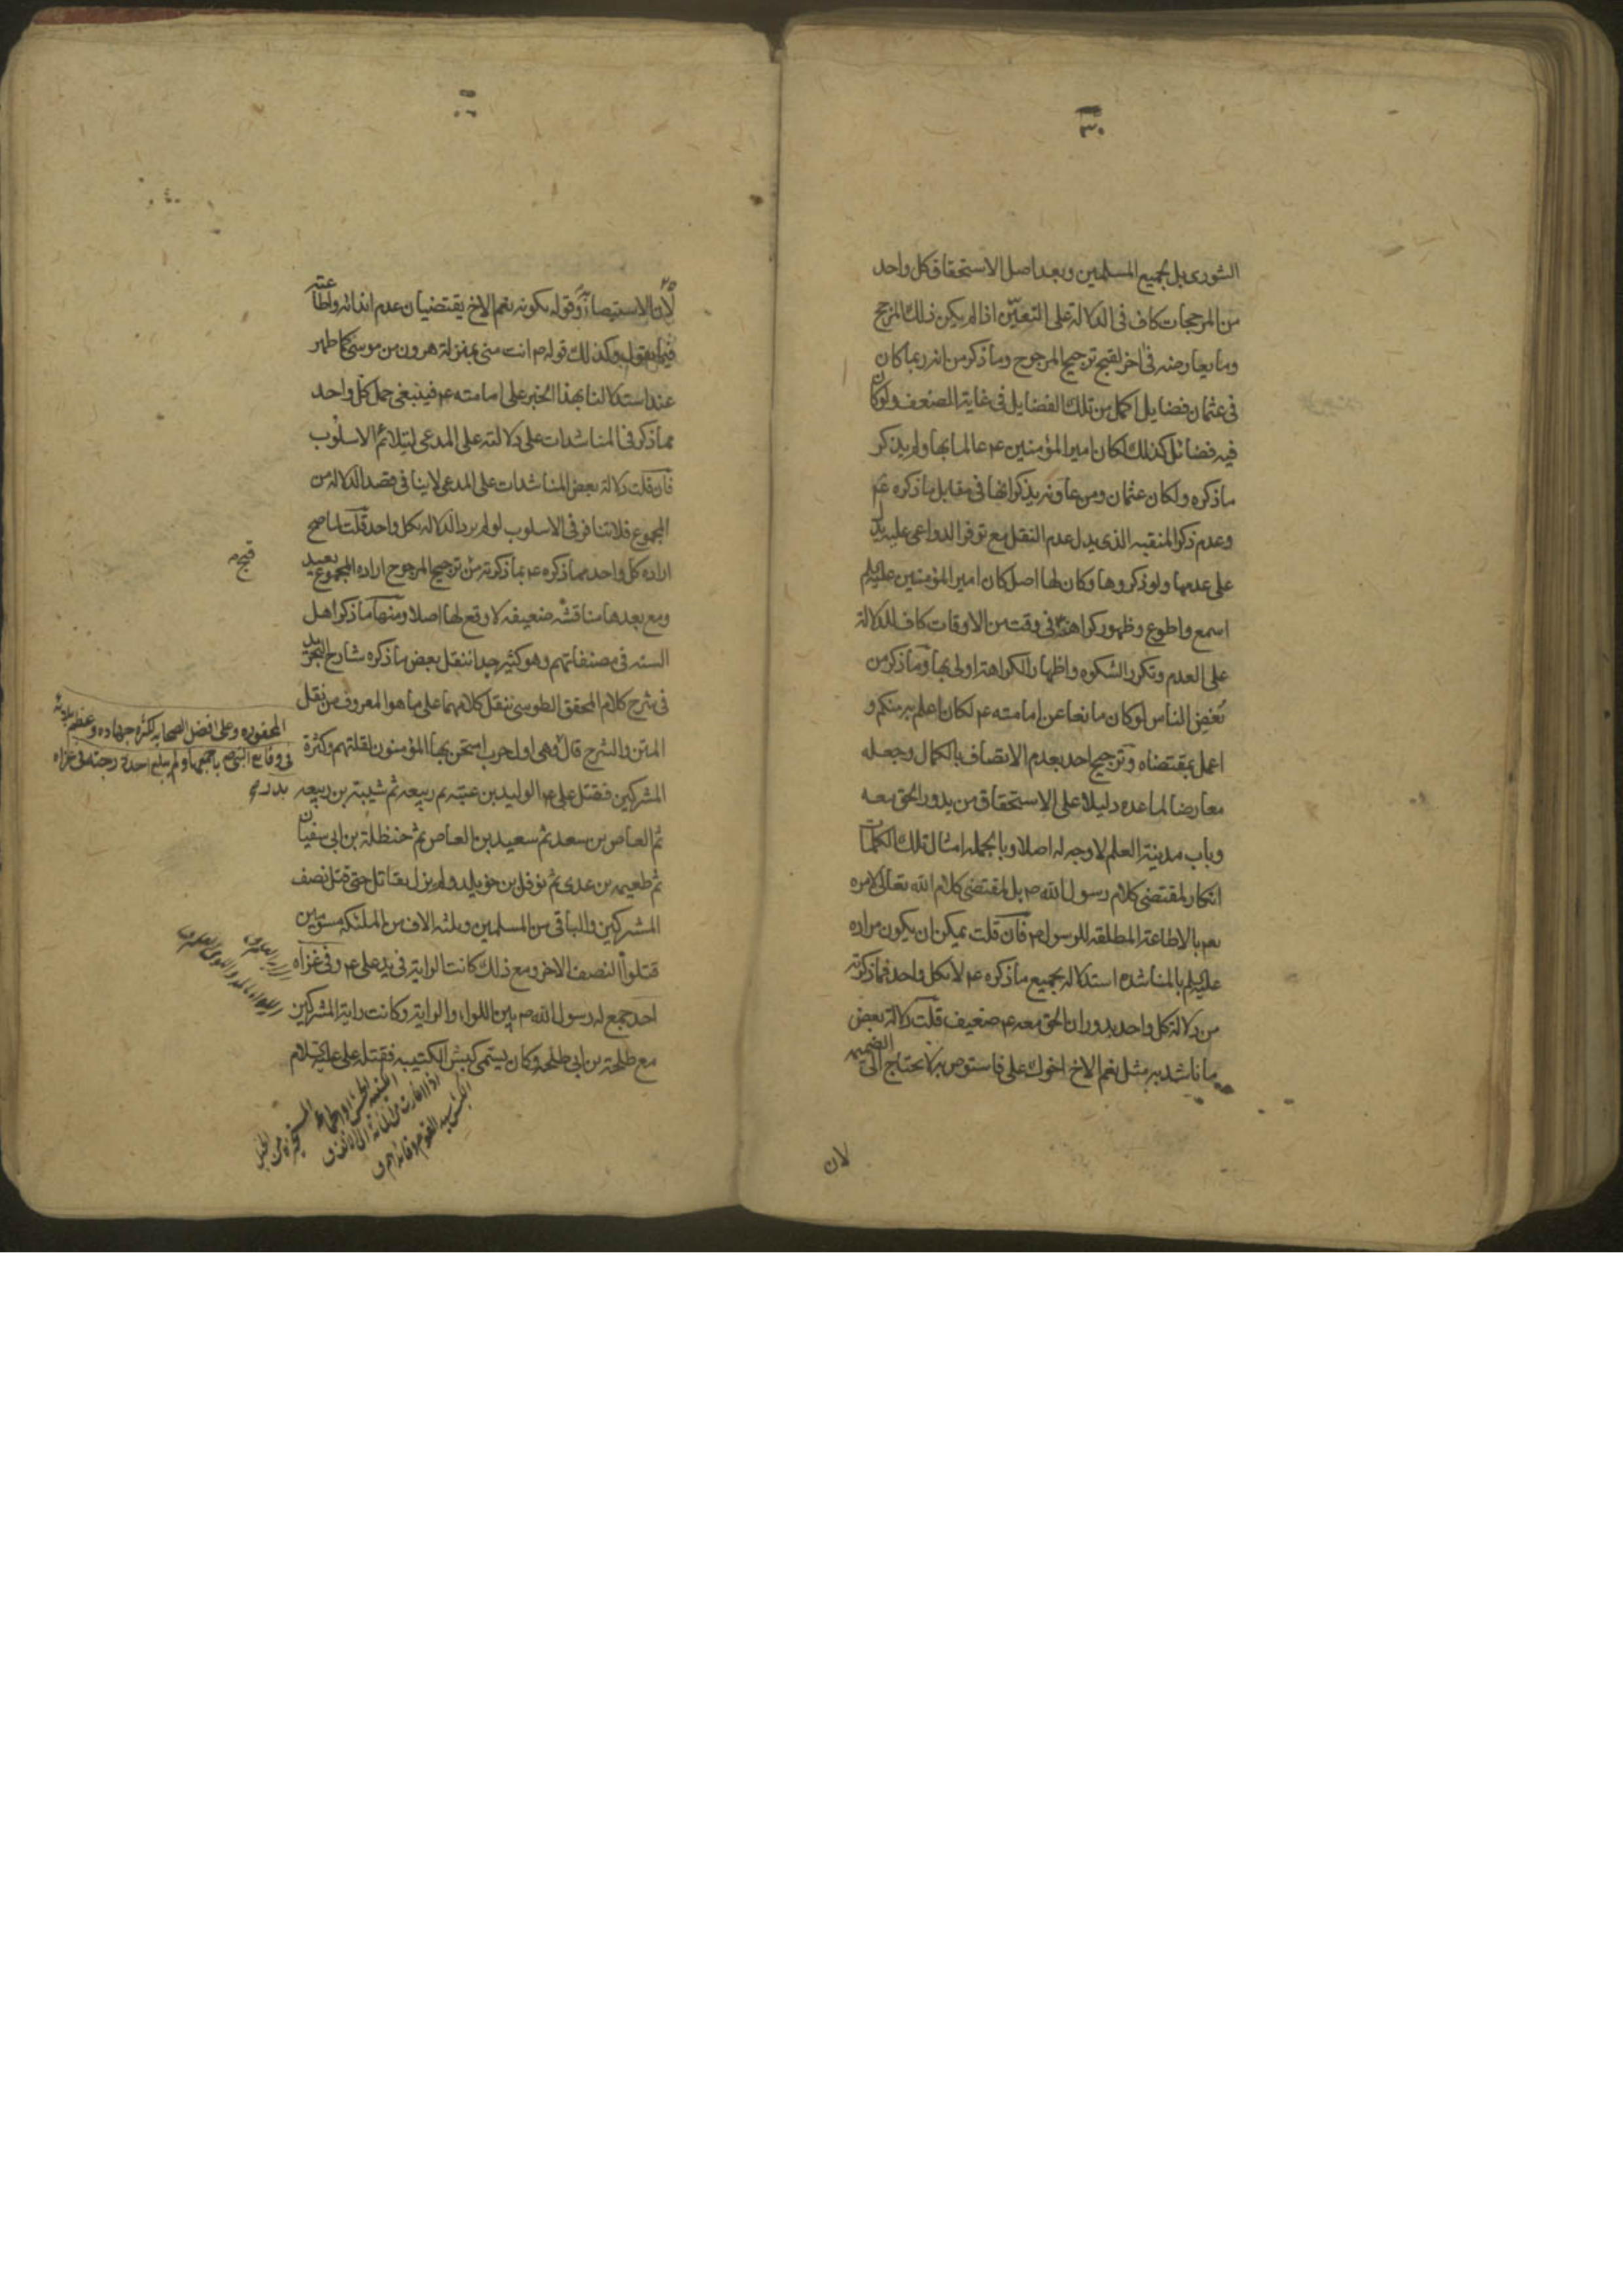 الشورى بل لجميع المسلمين وبعد اصل الاستحقاق كل واحد
من المرجحات كاف فى الدلالة على التعيين اذا لم يكن ذلك المرجح
وما يعارضه فى اخر لقبح ترجيح المرجوح وما ذكر من انه ربما كان
فى عثمان فضايل اكمل من تلك الفضايل فى غاية الضعف ولو كان
فيه فضائل كذلك لكان امير المؤمنين ع عالما بها ولم يذكر
ما ذكره ولكان عثمان ومن عاونه يذكرانها فى مقابل ما ذكره ع
وعدم ذكر المنقبه الذى يدل عدم النقل مع توفر الدواعى عليه يدل
على عدمها ولو ذكروها وكان لها اصل كان امير المؤمنين عليه السلم
اسمع واطوع وظهور كراهته فى وقت من الاوقات كاف للدلالة
على العدم وتكرر الشكوه واظهار الكراهة اولى بها وما ذكر من
بغض الناس لو كان مانعا عن امامته ع لكان اعلم به منكم و
اعمل بمقتضاه وترجيح احد بعدم الاتصاف بالكمال وجعله
معارضا لما عده دليلا على الاستحقاق من يدور الحق معه
وباب مدينة العلم لا وجه له اصلا وبالجمله امثال تلك الكلمات
انكار لمقتضى كلام رسول الله ص بل لمقتضى كلام الله تعالى لامره
بعد بالاطاعة المطلقه للرسول ص فان قلت يمكن ان يكون مراده
عليه السلم بالمناشده استدلاله بجميع ما ذكره ع لا بكل واحد فما ذكرته
من دلالة كل واحد بدوران الحق معه ع ضعيف قلت دلالة بعض
ما ناشد به مثل نعم الاخ اخوك على فاستوص به لا يحتاج الى الضميمه
لان
لان الاستيصاء به وقوله بكونه نعم الاخ يقتضيان عدم ايذائه واطاعته
فيما يقول وكذلك قوله ص انت منى بمنزلة هرون من موسى كما ظهر
عند استدلالنا بهذا الخبر على امامته ع فينبغى حمل كل واحد
مما ذكر فى المناشدات على دلالته على المدعى ليتلائم الاسلوب
فان قلت دلالة بعض المناشدات على المدعى لا ينافى قصد الدلالة من
المجموع فلا تنافر فى الاسلوب لو لم يرد الدلالة بكل واحد قلت لما صح
اراده كل واحد مما ذكره ع بما ذكرته من ترجيح المرجوح اراده المجموع بعيد
قبح
ومع بعدها مناقشه ضعيفه لا وقع لها اصلا ومنها ما ذكر اهل
السنه فى مصنفاتهم وهو كثير جدا ننقل بعض ما ذكره شارح التجريد
فى شرح كلام المحقق الطوسى ننقل كلامهما على ما هو المعروف من نقل
المتن والشرح قال وهى اول حرب امتحن بها المؤمنون لقلتهم وكثرة
المشركين فقتل على ع الوليد بن عتبه بن ربيعه ثم شيبة بن ربيعه
ثم العاص بن سعد ثم سعيد بن العاص ثم حنظلة بن ابى سفيان
ثم طعيمه بن عدى ثم نوفل بن خويلد ولم يزل يقاتل حتى قتل نصف
المشركين والباقى من المسلمين وثلثه الاف من الملئكه مسومين
قتلوا النصف الاخر ومع ذلك كانت الراية فى يد على ع وفى غزاه
احد جمع له رسول الله ص بين اللواء والراية وكانت راية المشركين
مع طلحة بن ابى طلحه وكان يسمى كبش الكتيبه فقتله على عليه السلام
المحقق ره وعلى افضل الصحابه لكثره جهاده وعظم بلائه
فى وقايع النبى ص باجمعها ولم يبلغ احد درجته فى غزاه
بدر
الكبش سيد القوم وقائدهم ق